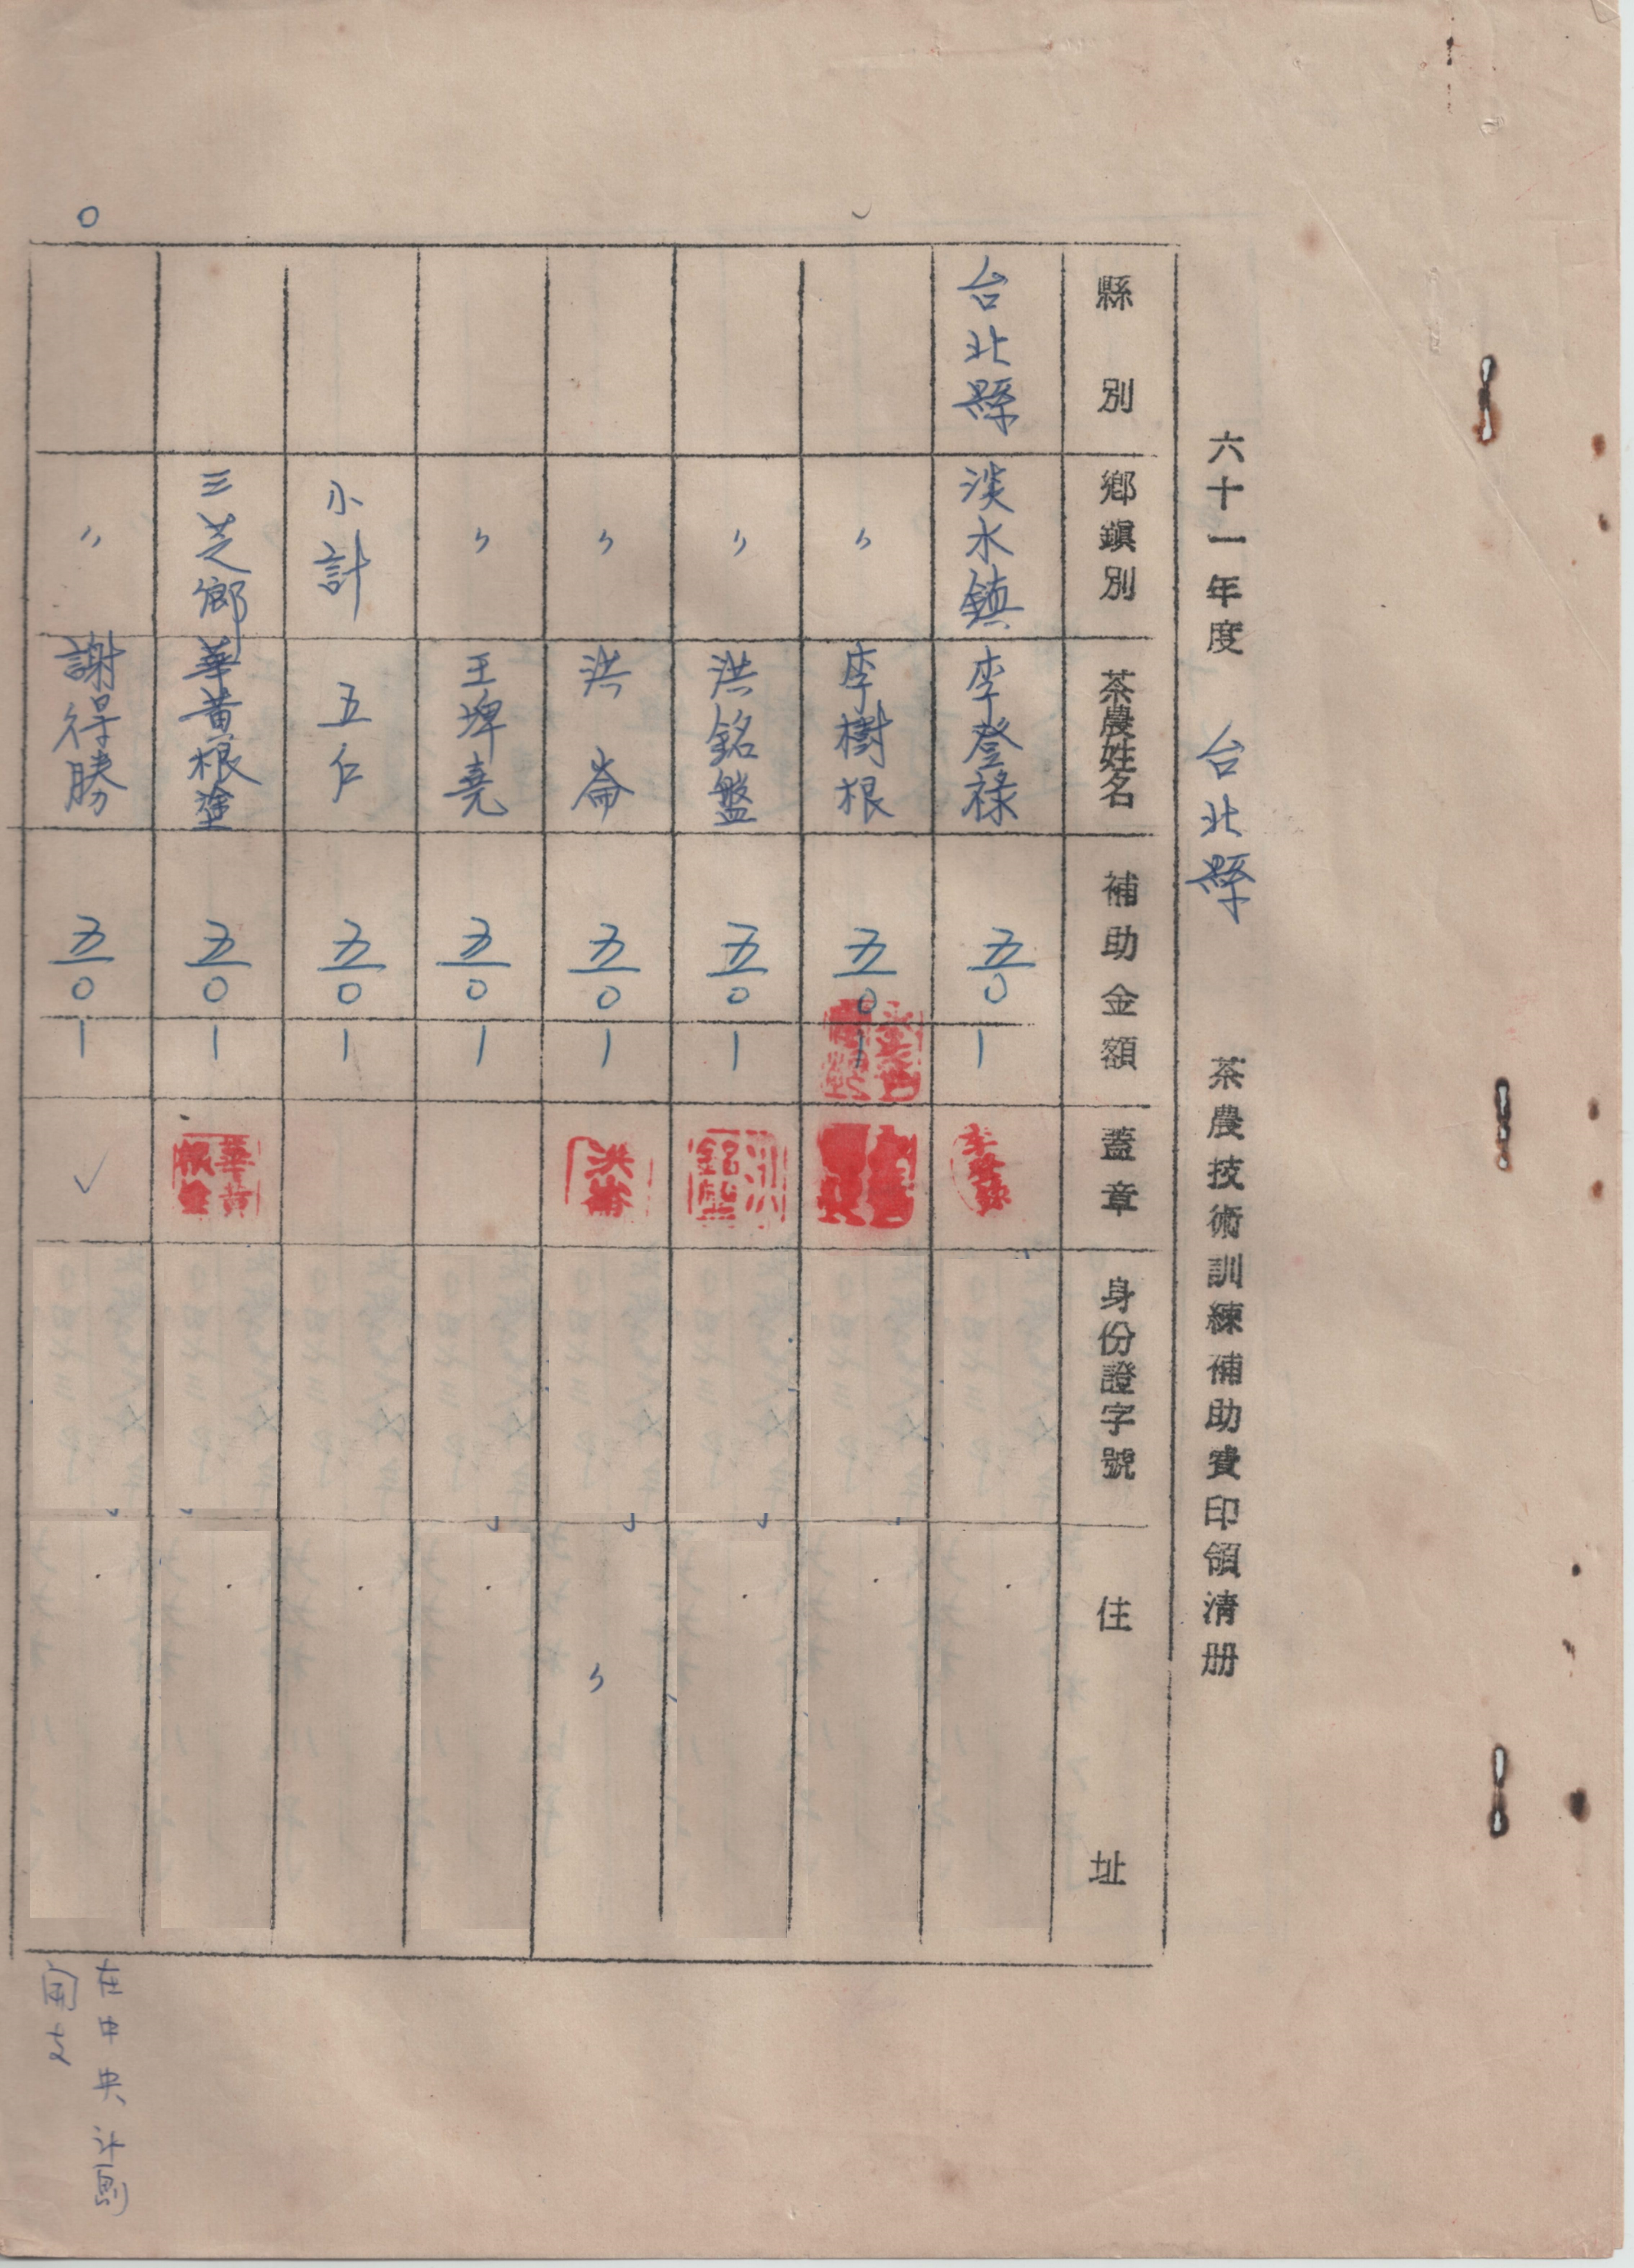 六十一年度 台北縣 茶農技術訓練補助費印領清册
縣別 鄉鎭別 茶農姓名 補助金額 蓋章 身份證字號 住址
台北縣 淡水鎮 李登祿 五〇 1 李登祿
〃 李樹根 五〇 1
〃 洪銘盤 五〇 1 洪銘盤
〃 洪崙 五〇 1 洪崙 〃
〃 王埤堯 五〇 1
小計 五仁 五〇 1
三芝鄉 華黃根塗 五〇 1 華黃根塗
〃 謝得勝 五〇 1 ✓
在中央計劃
開支